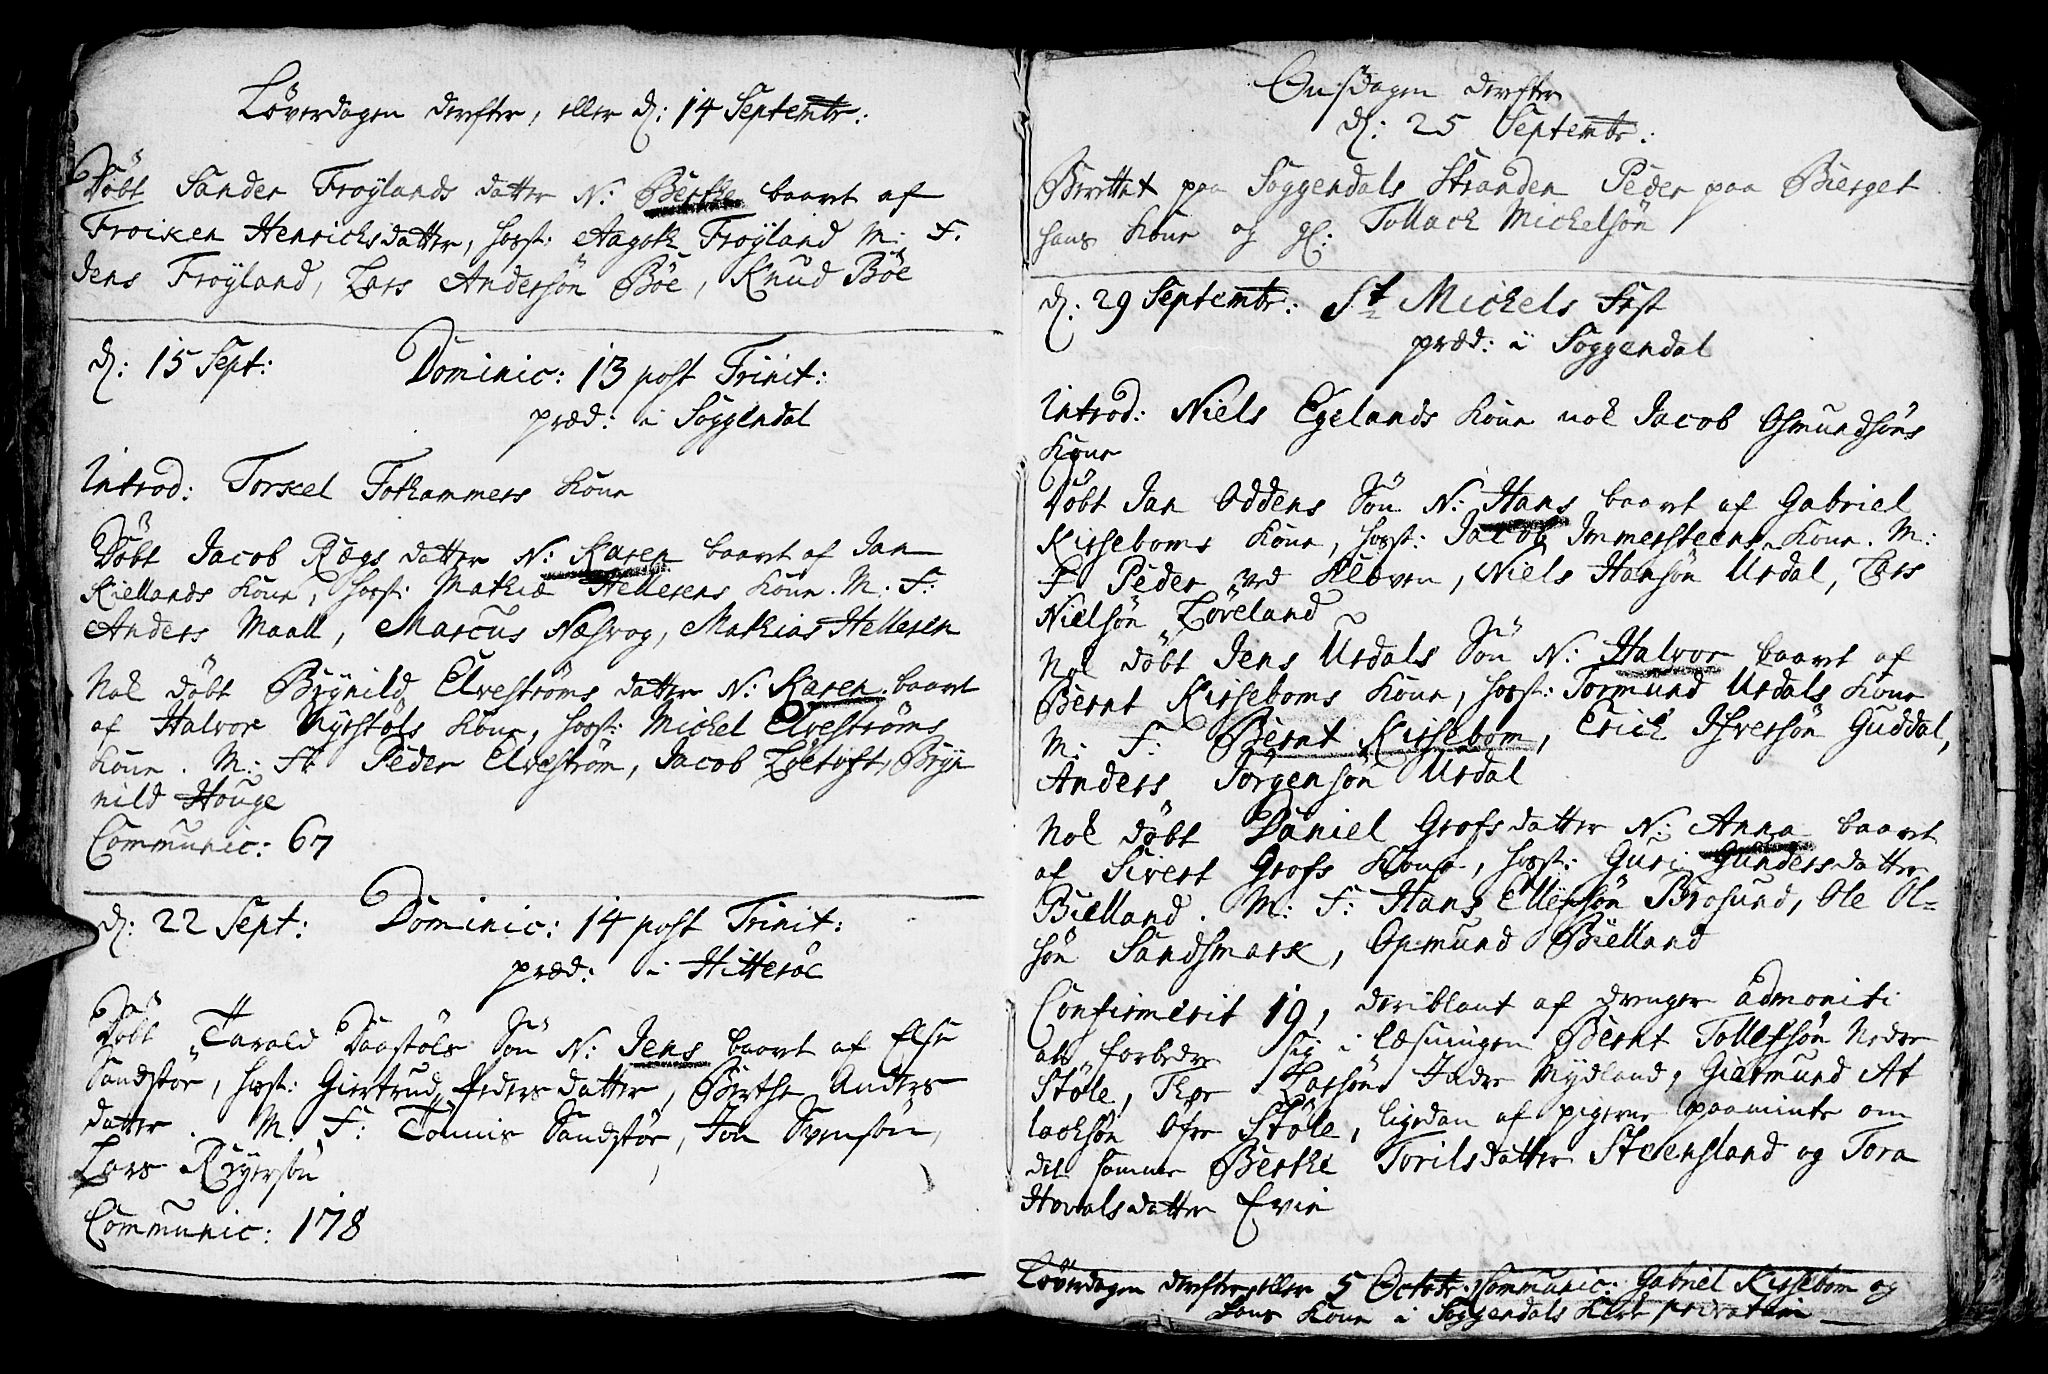 Løverdagen derefter, eller d: 14 Septembr:
Døbt Sander Frøylands datter N: Berthe baaret af
Froiken Henrichsdatter, host: Aagot Frøyland M: F.
Jens Frøyland, Lars Andersøn Bøe, Knud Bøe
d: 15 Sept: Dominic: 13 post Trinit:
præd: i Soggendal
Introd: Torkel Fothammers Kone
Døbt Jacob Rægs datter N: Karen baaret af Jan
Kiellands Kone, host: Mathiæ Hellerens Kone. M: F:
Anders Maall, Marcus Nesvog, Mathias Helleren
Nok døbt Brynild Elvestrøms datter N: Karen baaret
af Halvor Nyestøls Kone, host: Michel Elvestrøms
Kone. M: F: Peder Elvestrøm, Jacob Løetoft, Bryn
nild Houge
Communic: 67
d: 22 Sept: Dominic: 14 post Trinit:
præd: i Hitterøe
Døbt Tarald Daastøls Søn N: Jens baaret af Else
Sandstøe, host: Giertrud Pedersdatter, Birthe Anders
datter. M: F: Tønnis Sandstøe, Jon Svensøn,
Lars Reyersøn
Communic: 178
Onsdagen derefter
d: 25 Septembr:
Berettet paa Soggendals Stranden Peder paa Bierget
hans Kone og gl: Tollach Michelsøn
d: 29 Septembr: St Michels Fest
præd: i Soggendal
Introd: Niels Egelands Kone nok Jacob Osmundsøns
Kone
Døbt Jan Oddens Søn N: Hans baaret af Gabriel
Kirseboms Kone, host: Jacob Immersteens Kone. M:
F Peder ved Kleven, Niels Hansøn Urdal, Lars
Nielsøn Løveland
Nok døbt Jens Urdals Søn N: Halvor baaret af
Bernt Kirseboms Kone, host: Tormund Urdals Kone
M: F: Bernt Kirsebom, Erich Ifversøn Guddal,
Anders Jørgensøn Urdal
Nok døbt Daniel Grofs datter N: Anna baaret
af Sivert Grofs Kone, host: Guri Gundersdatter
Bielland. M: F: Hans Ellefsøn Brosund, Ole Ol=
søn Sandsmark, Osmund Bielland
Confirmerit 19, deriblant af drenger admoniti
at forbedre sig i læsningen Bernt Tollefsøn Nedre
Støle, Thore Larsøn Indre Nydland, Giermund At
lachsøn Øfre Støle, ligedan af pigerne paaminte om
det samme Berthe Torilsdatter Steensland og Tora
Hovalsdatter Evie
Løverdagen derefter eller 5 Octobr: Communic: Gabriel Kirsebom og
hans Kone i Soggendals Kirke privatim